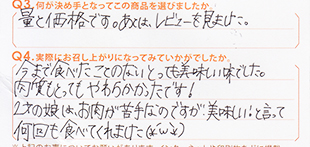 Q3.何が決め手となってこの商品を選びましたか
量と価格です。あとは、レビューも見ました。
Q4.実際にお召し上がりになってみていかがでしたか。
今まで食べたことのないとっても美味しい味でした。
肉質もとってもやわらかかったです!
2才の娘は、お肉が苦手なのですが"美味しい!"と言って
何回も食べてくれました(≧ω≦)